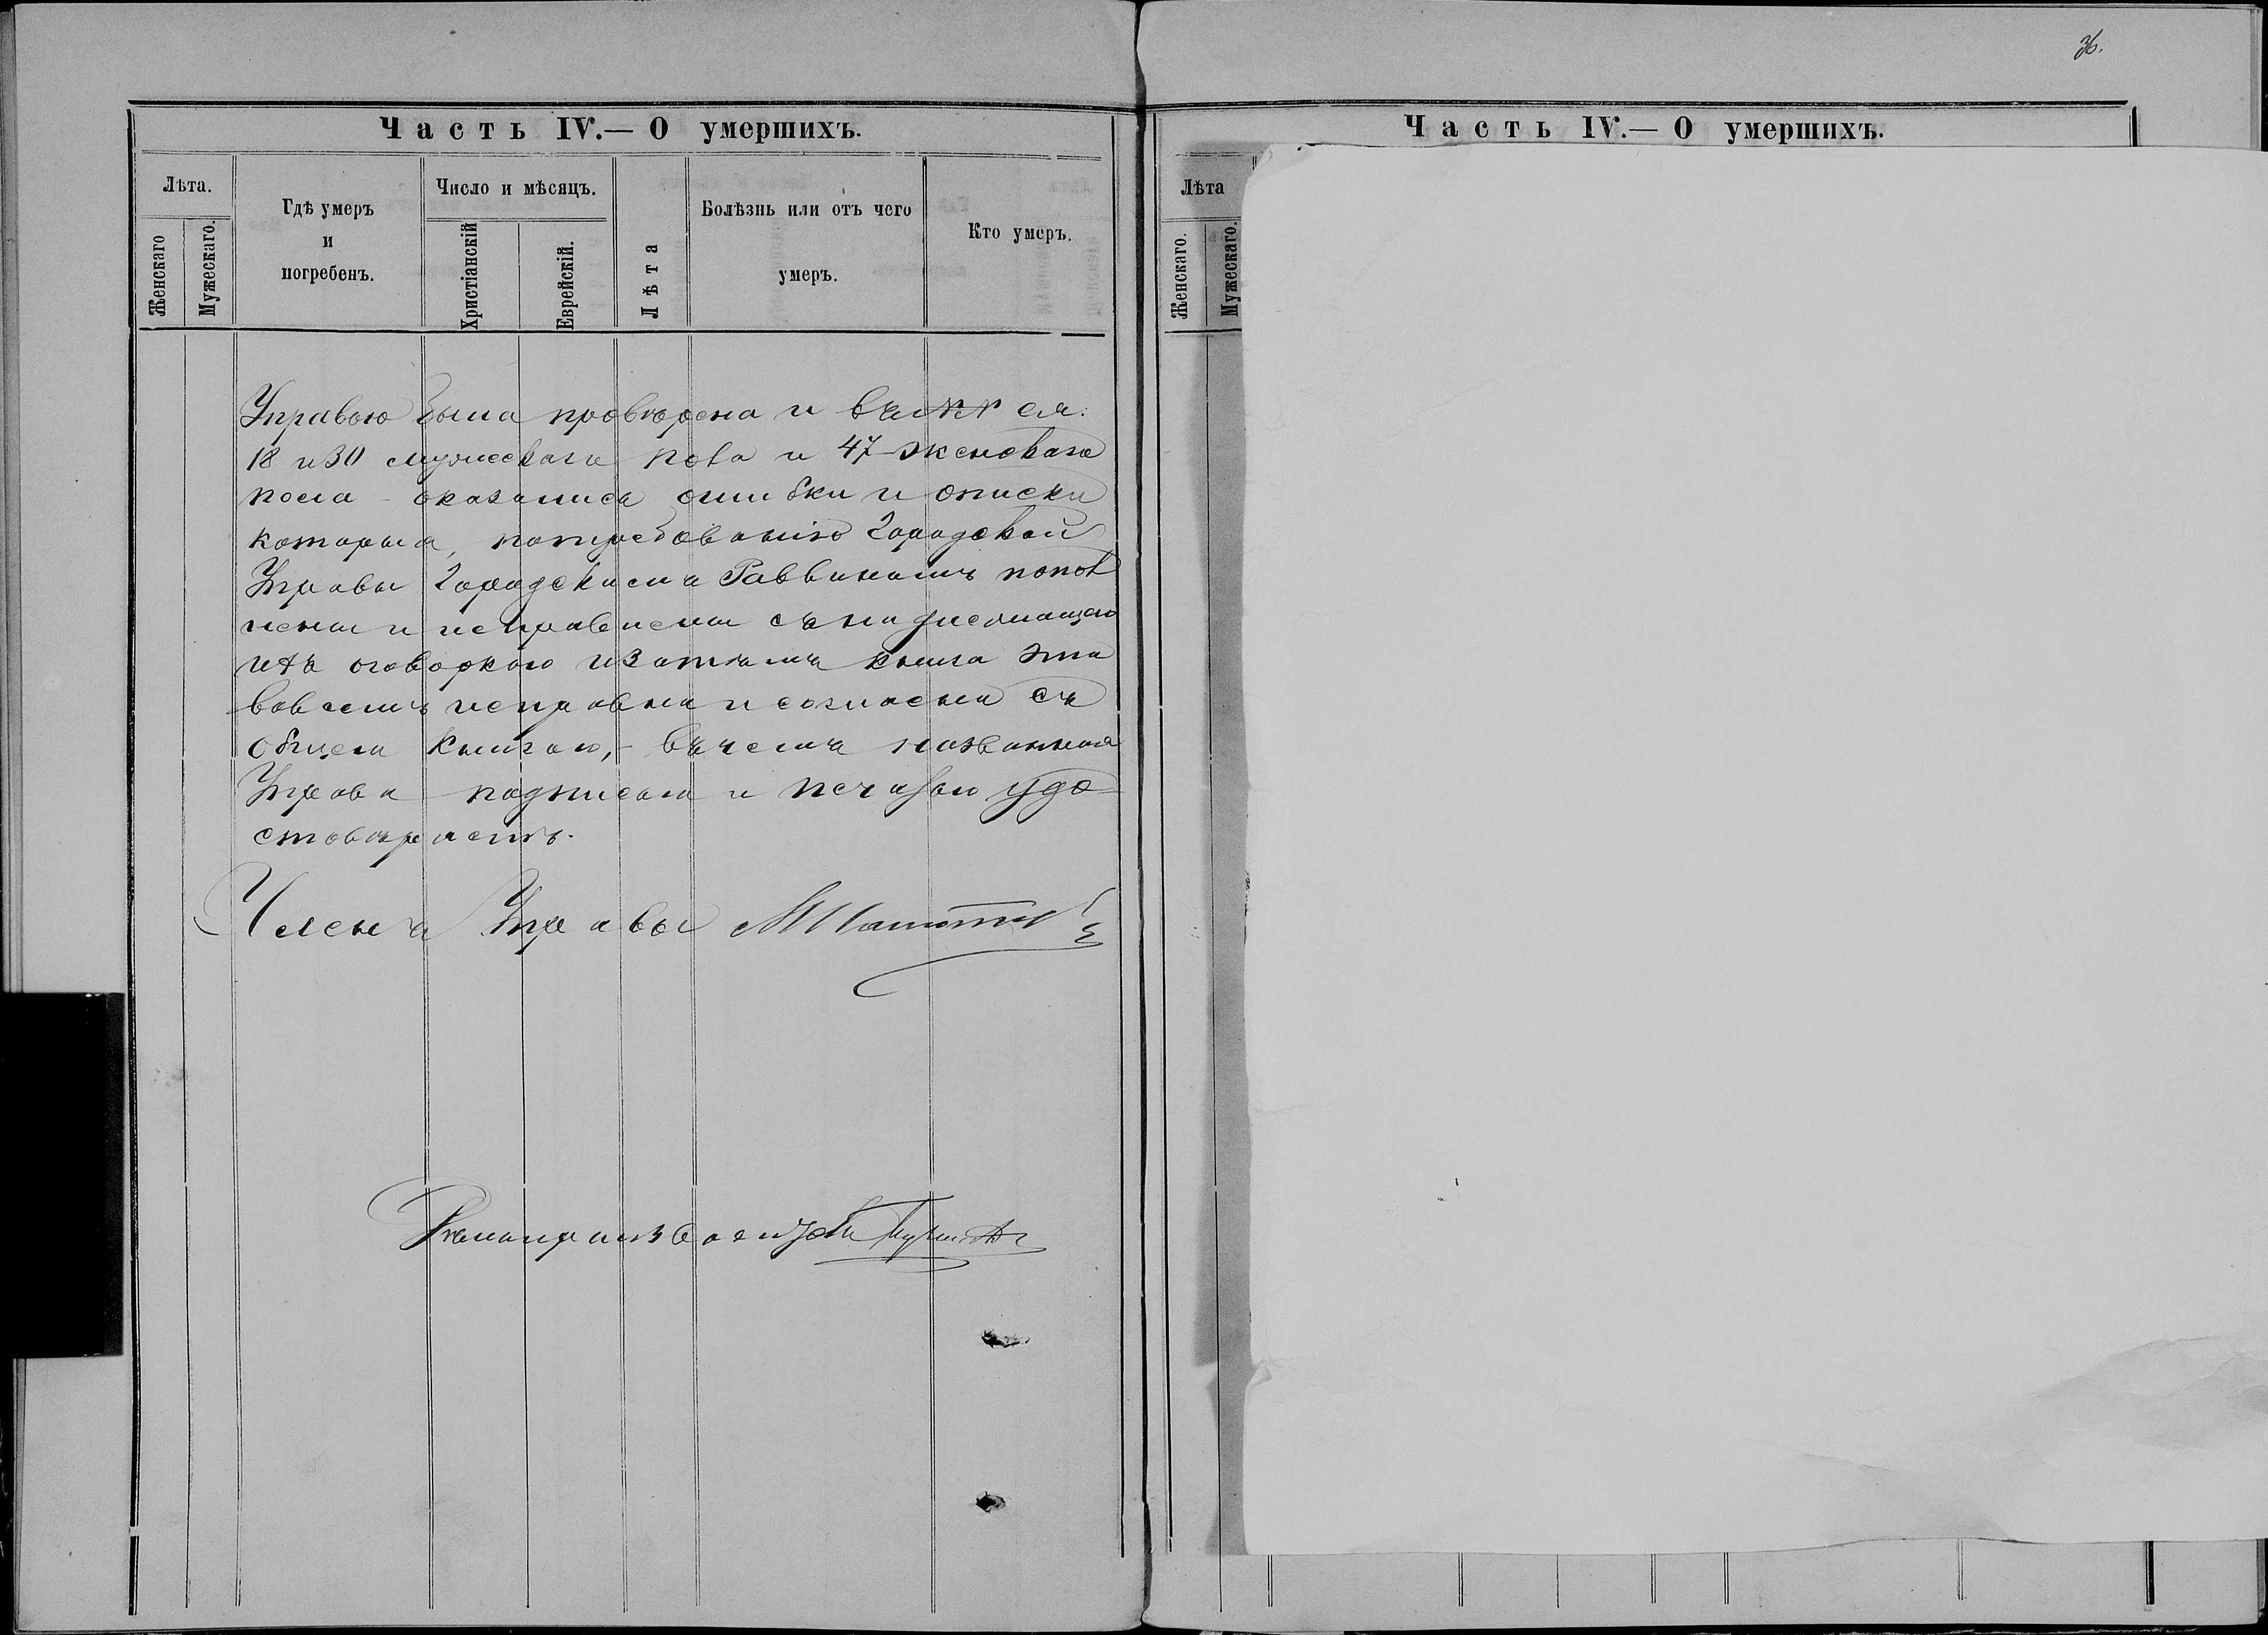 36.
Часть IV.— О умершихъ.
Лѣта.
Женскаго
Мужескаго.
Гдѣ умеръ
и
погребенъ.
Число и мѣсяцъ.
Христіанскій
Еврейскій.
Лѣта
Болѣзнь или отъ чего
умеръ.
Кто умеръ.
Управою была провѣрена и въ №№ ея:
18 и 30 мужескаго пола и 47 женскаго
пола - оказались ошибки и описки
которыя, по требованію Городской
Управы Городскимъ Раввиномъ попол
нены и исправлены съ надлежащею
ихъ оговоркою и затѣмъ книга эта
вовсемъ исправна и согласна съ
общею книгою,- въ чемъ названная
Управа подписью и печатью удо
стовѣряетъ.
Членъ Управы
Дѣлопроизводитель
Часть IV.— О умершихъ.
Лѣта
Женскаго.
Мужескаго.